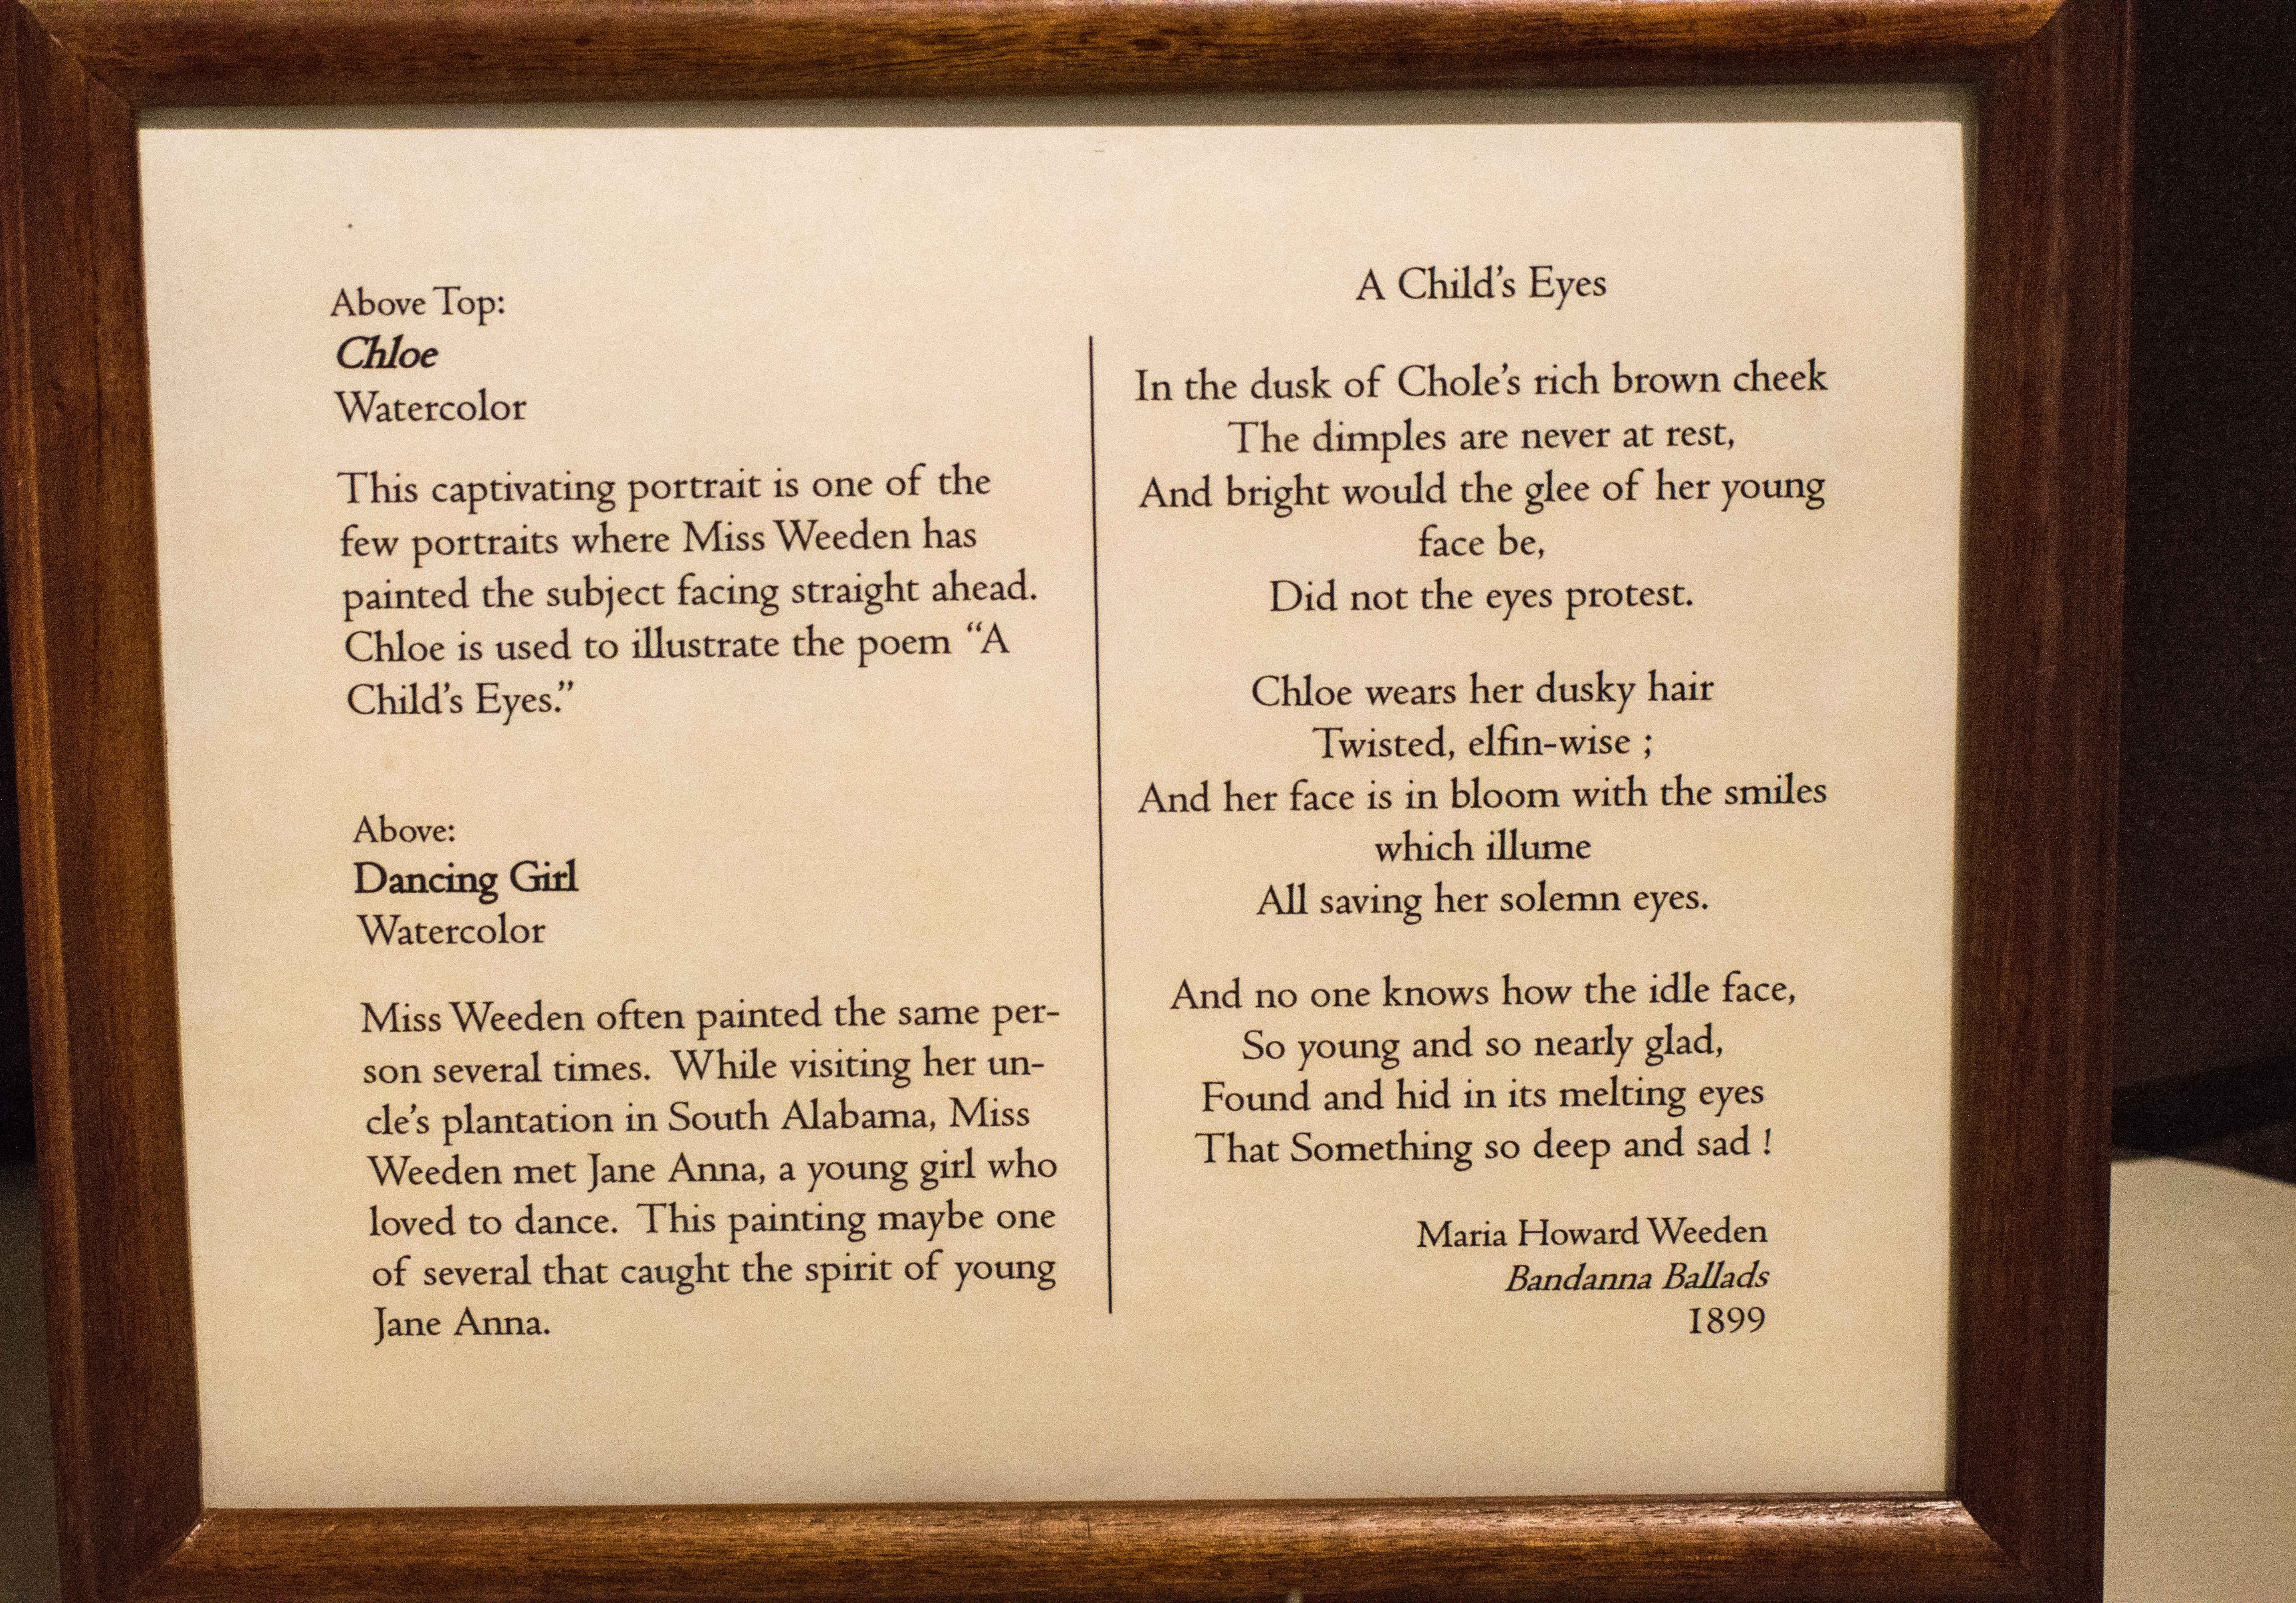 Above Top:
Chloe
Watercolor
This captivating portrait is one of the
few portraits where Miss Weeden has
painted the subject facing straight ahead.
Chloe is used to illustrate the poem “A
Child’s Eyes.”
Above:
Dancing Girl
Watercolor
Miss Weeden often painted the same per-
son several times. While visiting her un-
cle’s plantation in South Alabama, Miss
Weeden met Jane Anna, a young girl who
loved to dance. This painting maybe one
of several that caught the spirit of young
Jane Anna.
A Child’s Eyes
In the dusk of Chole’s rich brown cheek
The dimples are never at rest,
And bright would the glee of her young
face be,
Did not the eyes protest.
Chloe wears her dusky hair
Twisted, elfin-wise ;
And her face is in bloom with the smiles
which illume
All saving her solemn eyes.
And no one knows how the idle face,
So young and so nearly glad,
Found and hid in its melting eyes
That Something so deep and sad !
Maria Howard Weeden
Bandanna Ballads
1899